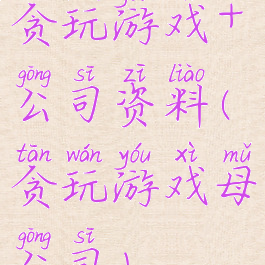 贪玩游戏+
gōng sī zī liào
公司资料(
tān wán yóu xì mǔ
贪玩游戏母
gōng sī
公司)